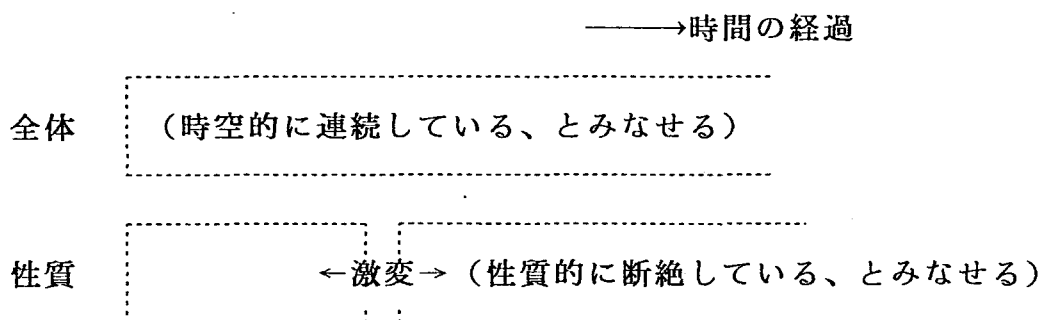 ———→時間の経過
全体 （時空的に連続している、とみなせる）
性質 ←激変→（性質的に断絶している、とみなせる）